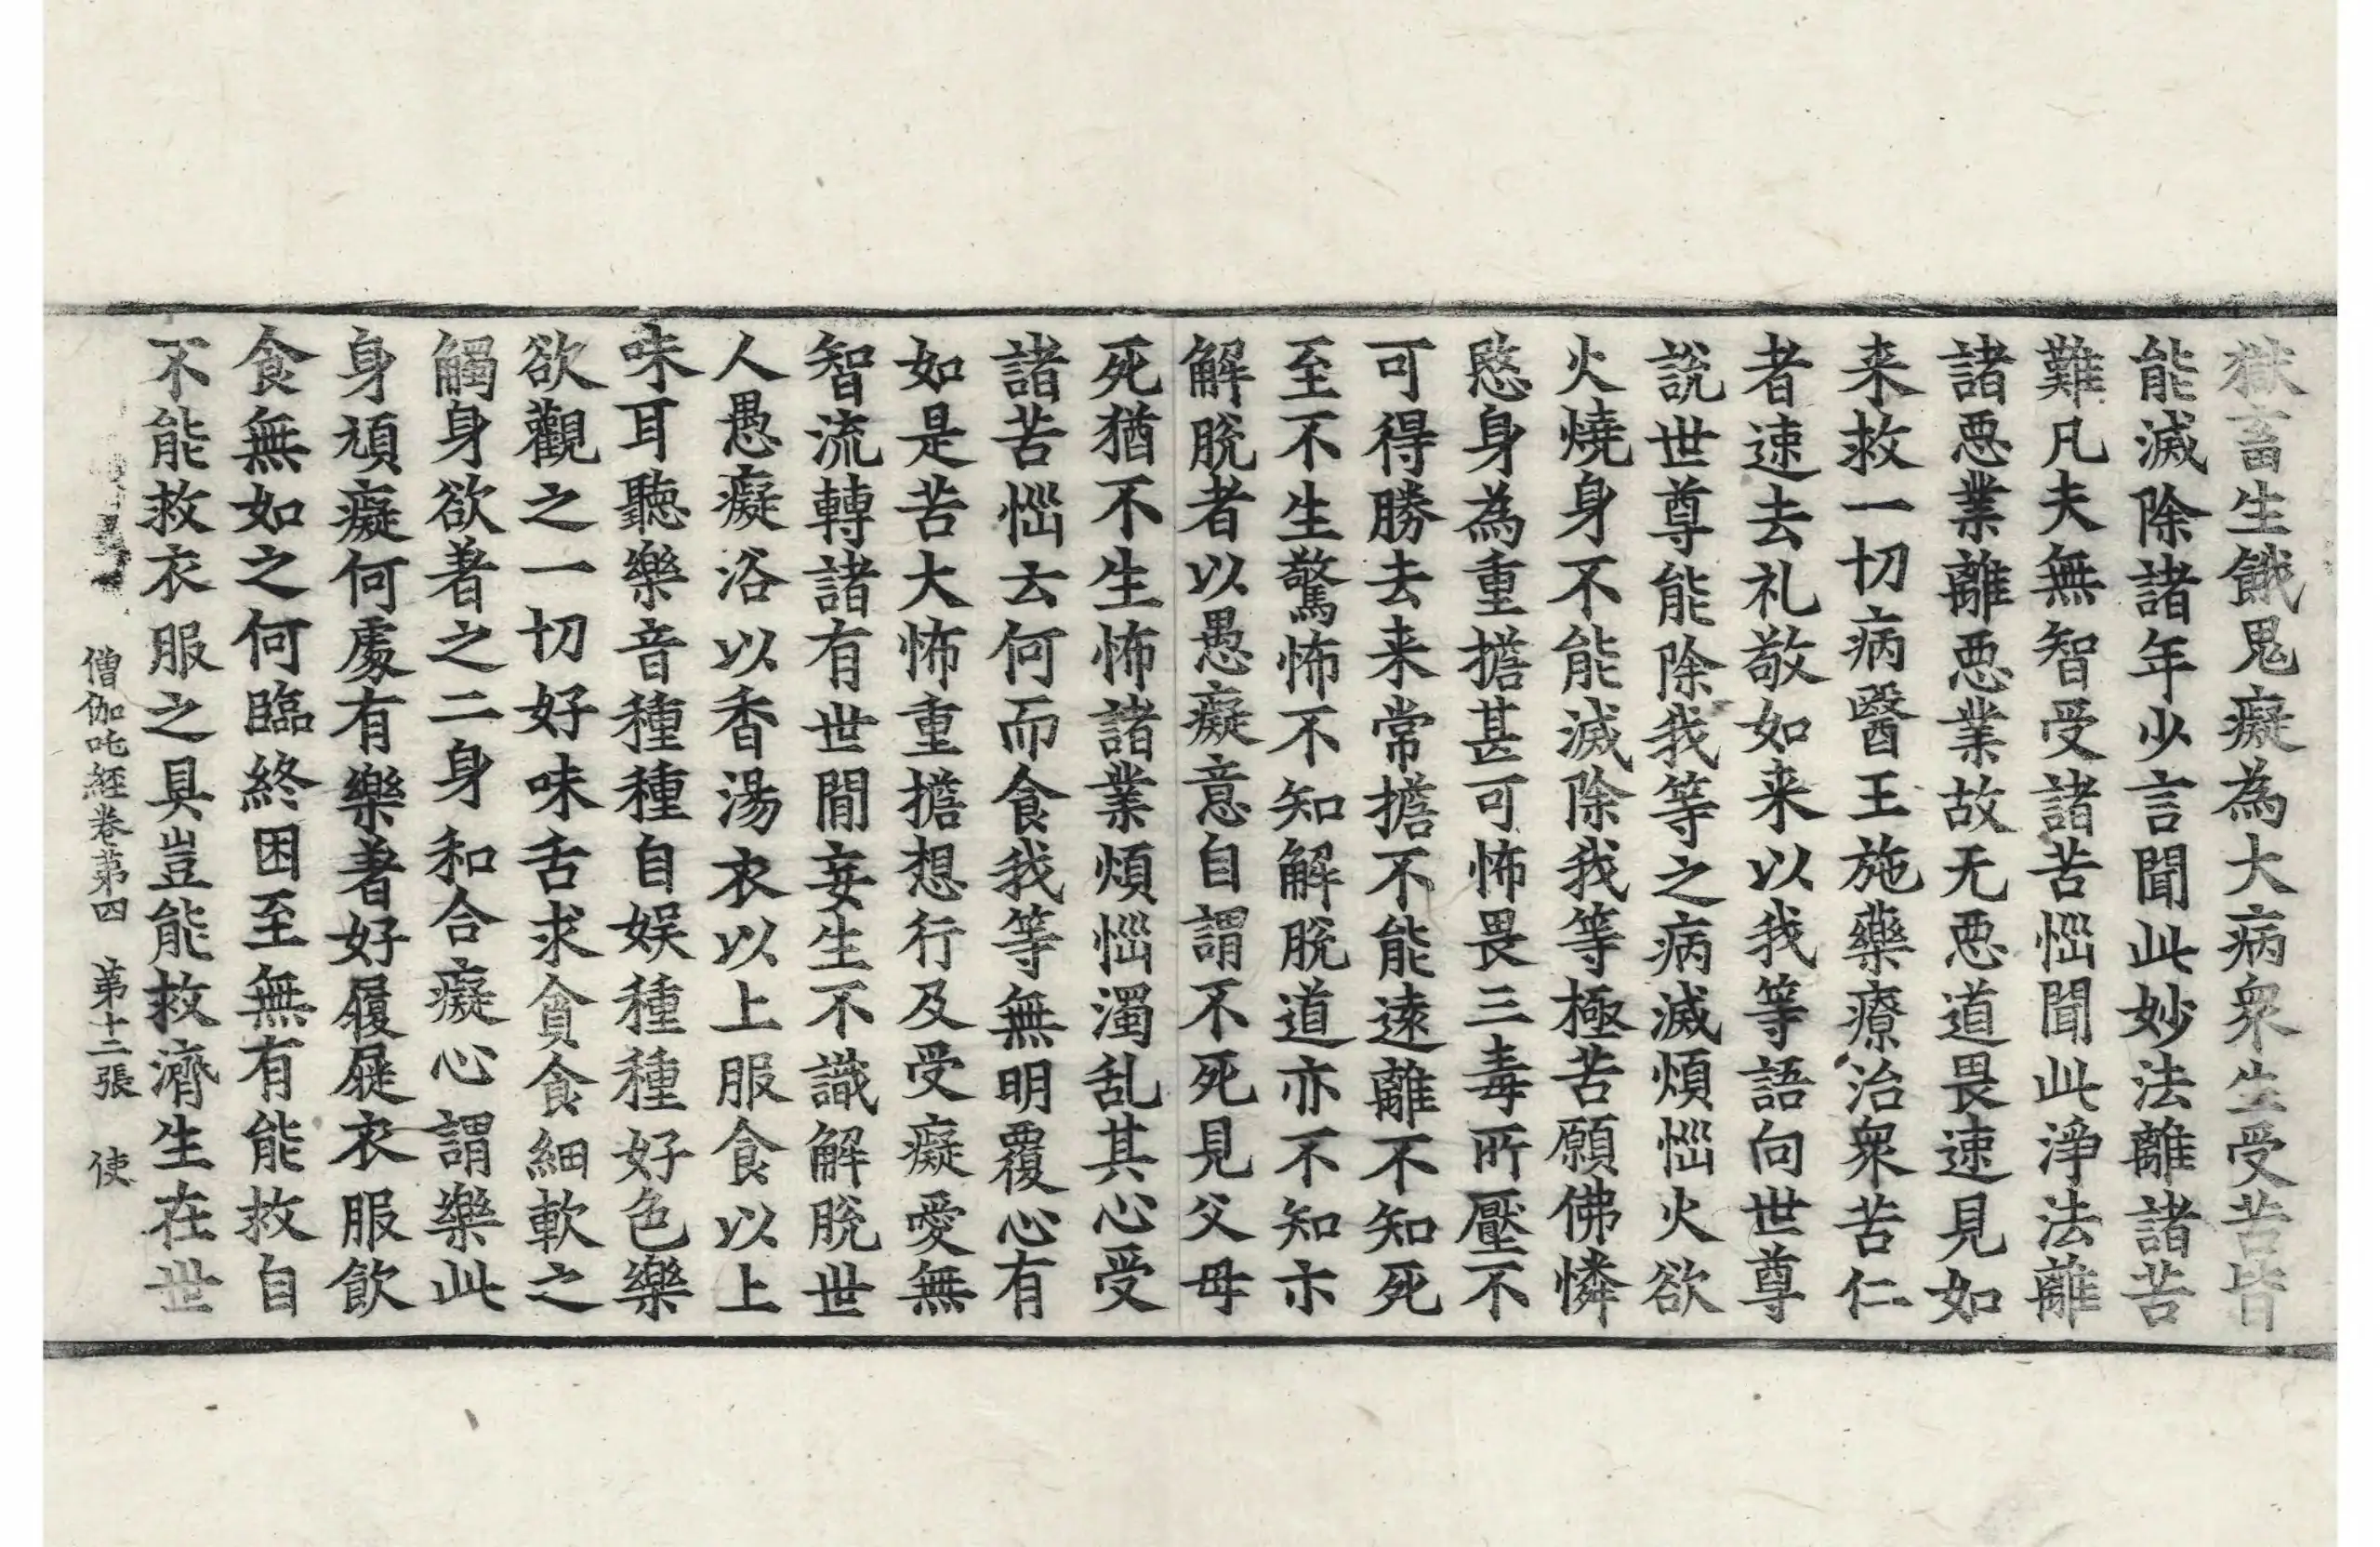 獄畜生餓鬼癡為大病衆生受苦皆
能滅除諸年少言聞此妙法離諸苦
難凡夫無智受諸苦惱聞此淨法離
諸惡業離惡業故无惡道畏速見如
来救一切病醫王施藥療治衆苦仁
者速去礼敬如来以我等語向世尊
說世尊能除我等之病滅煩惱火欲
火燒身不能滅除我等極苦願佛憐
愍身為重擔甚可怖畏三毒所壓不
可得勝去来常擔不能遠離不知死
至不生驚怖不知解脫道亦不知示
解脫者以愚癡意自謂不死見父母
死猶不生怖諸業煩惱濁乱其心受
諸苦惱云何而食我等無明覆心有
如是苦大怖重擔想行及受癡愛無
智流轉諸有世間妄生不識解脫世
人愚癡浴以香湯衣以上服食以上
味耳聽樂音種種自娱種種好色樂
欲觀之一切好味舌求貪食細軟之
觸身欲著之二身和合癡心謂樂此
身頑癡何處有樂著好履屣衣服飲
食無如之何臨終困至無有能救自
不能救衣服之具豈能救濟生在世
僧伽吒経卷第四　第十二張　使